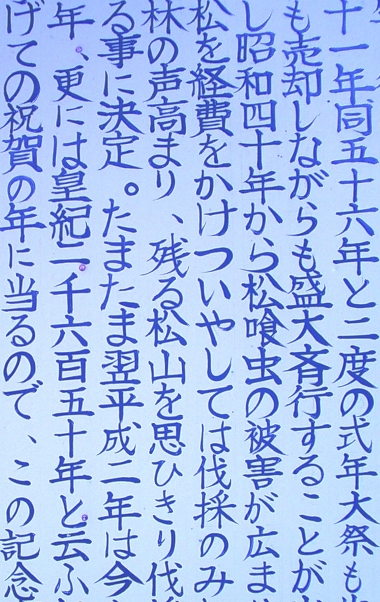 十一年同五十六年と二度の式年大祭も
も売却しながらも盛大斉行することが
し昭和四十年から松喰虫の被害が広ま
松を経費をかけついやしては伐採のみ
林の声高まり、残る松山を思ひきり伐
る事に決定。たまたま翌平成二年は今
年、更には皇紀二千六百五十年と云ふ
げての祝賀の年に当るので、この記念